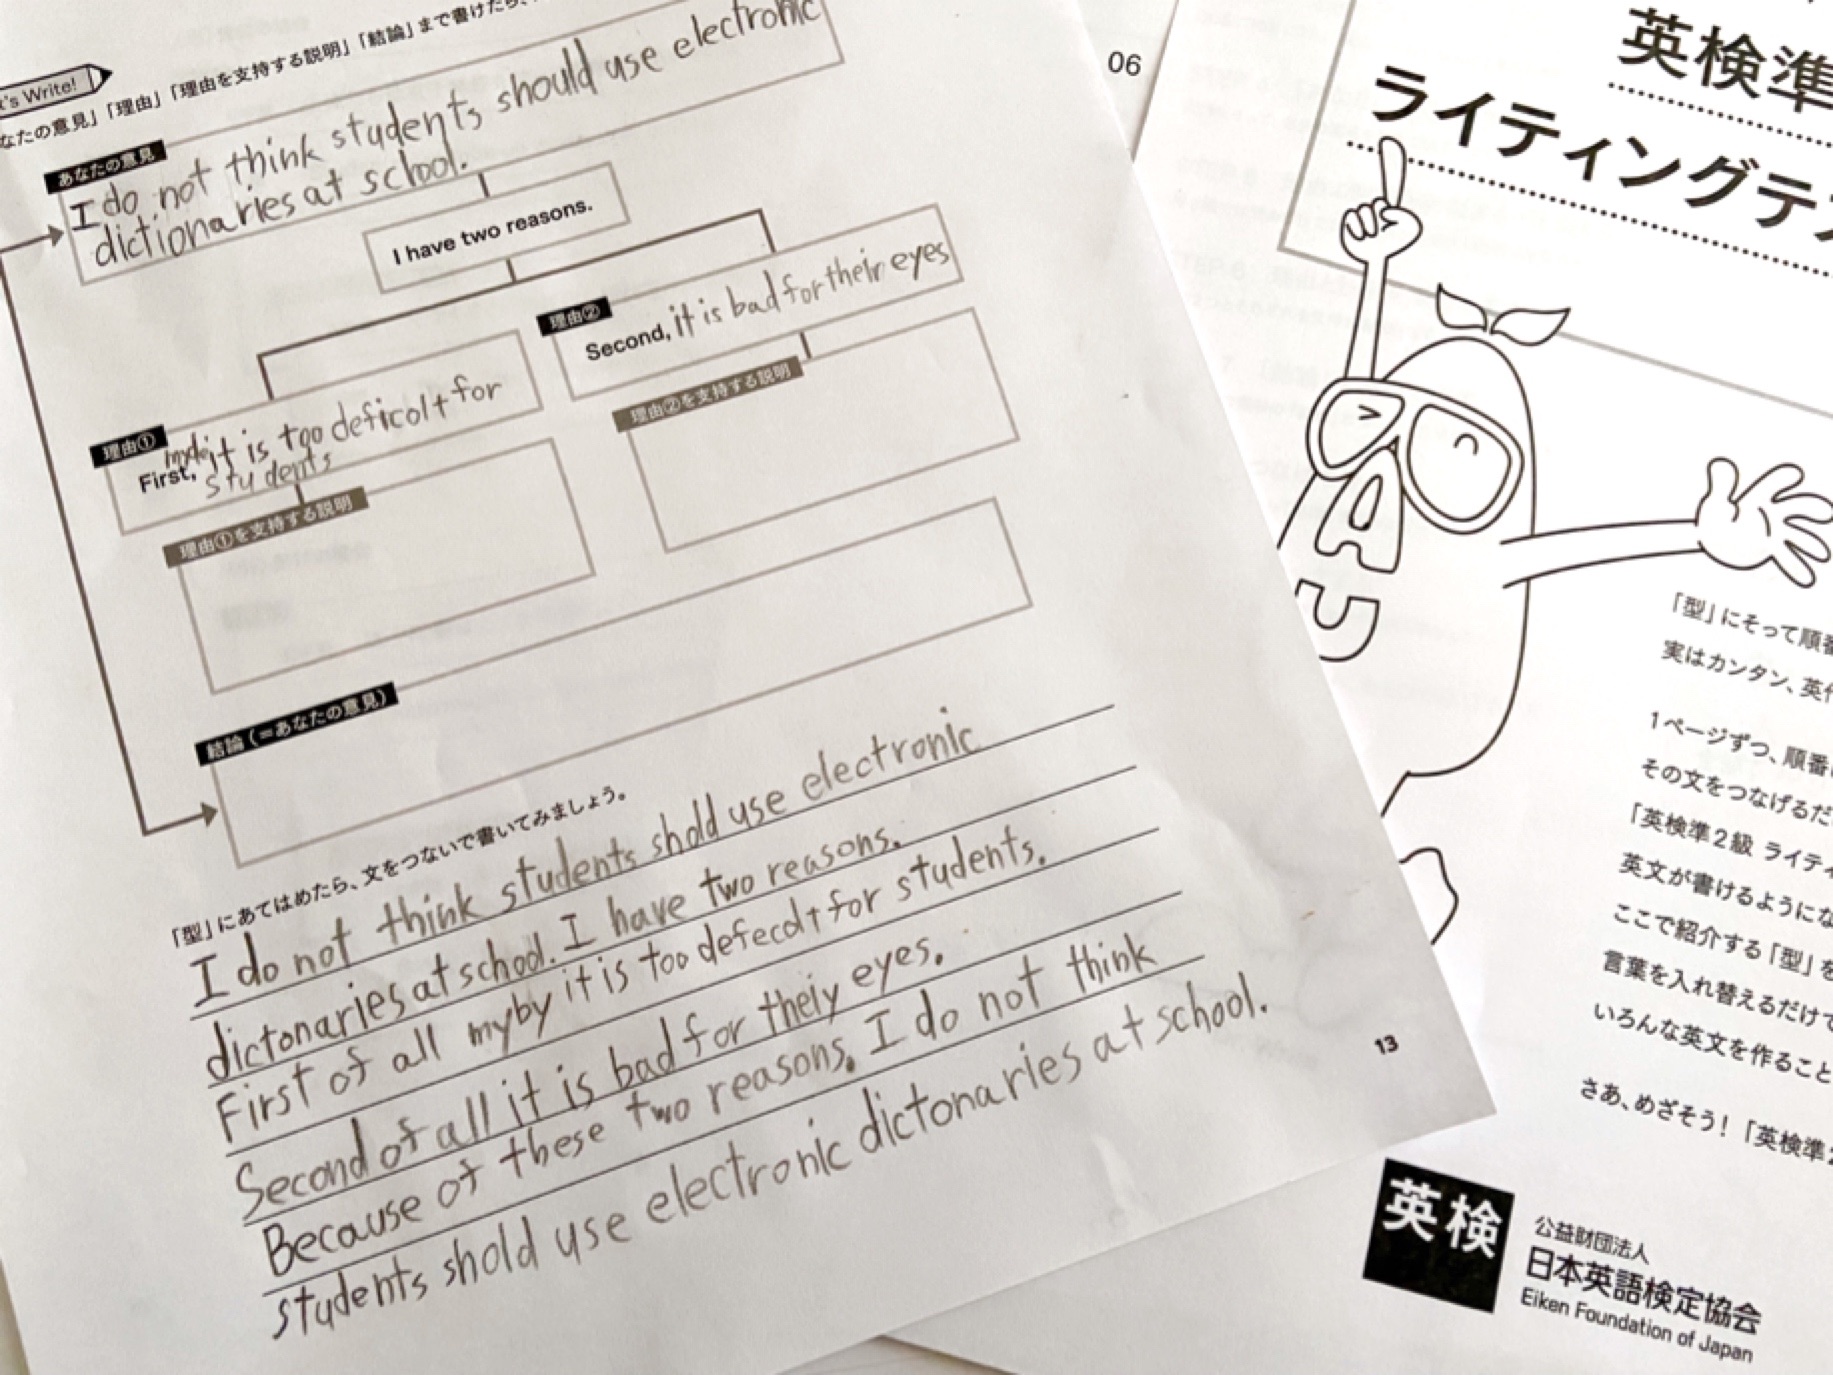 't's Write!
なたの意見」「理由」「理由を支持する説明」「結論」まで書けたら、
あなたの意見
I do not think students should use electronic
dictionaries at school.
I have two reasons.
理由①
First, it is too deficolt for
students
理由①を支持する説明
理由②
Second, it is bad for their eyes
理由②を支持する説明
結論(=あなたの意見)
「型」にあてはめたら、文をつないで書いてみましょう。
I do not think students shold use electronic
dictonaries at school. I have two reasons.
First of all myby it is too defecolt for students.
Second of all it is bad for theiy eyes.
Because of these two reasons. I do not think
students shold use electronic dictonaries at school.
13
06
英検準
ライティングテ
「型」にそって順番
実はカンタン、英作
1ページずつ、順番に
その文をつなげるだ
「英検準2級 ライティ
英文が書けるようにな
ここで紹介する「型」を
言葉を入れ替えるだけで
いろんな英文を作ること
さあ、めざそう!「英検準2
英検
公益財団法人
日本英語検定協会
Eiken Foundation of Japan